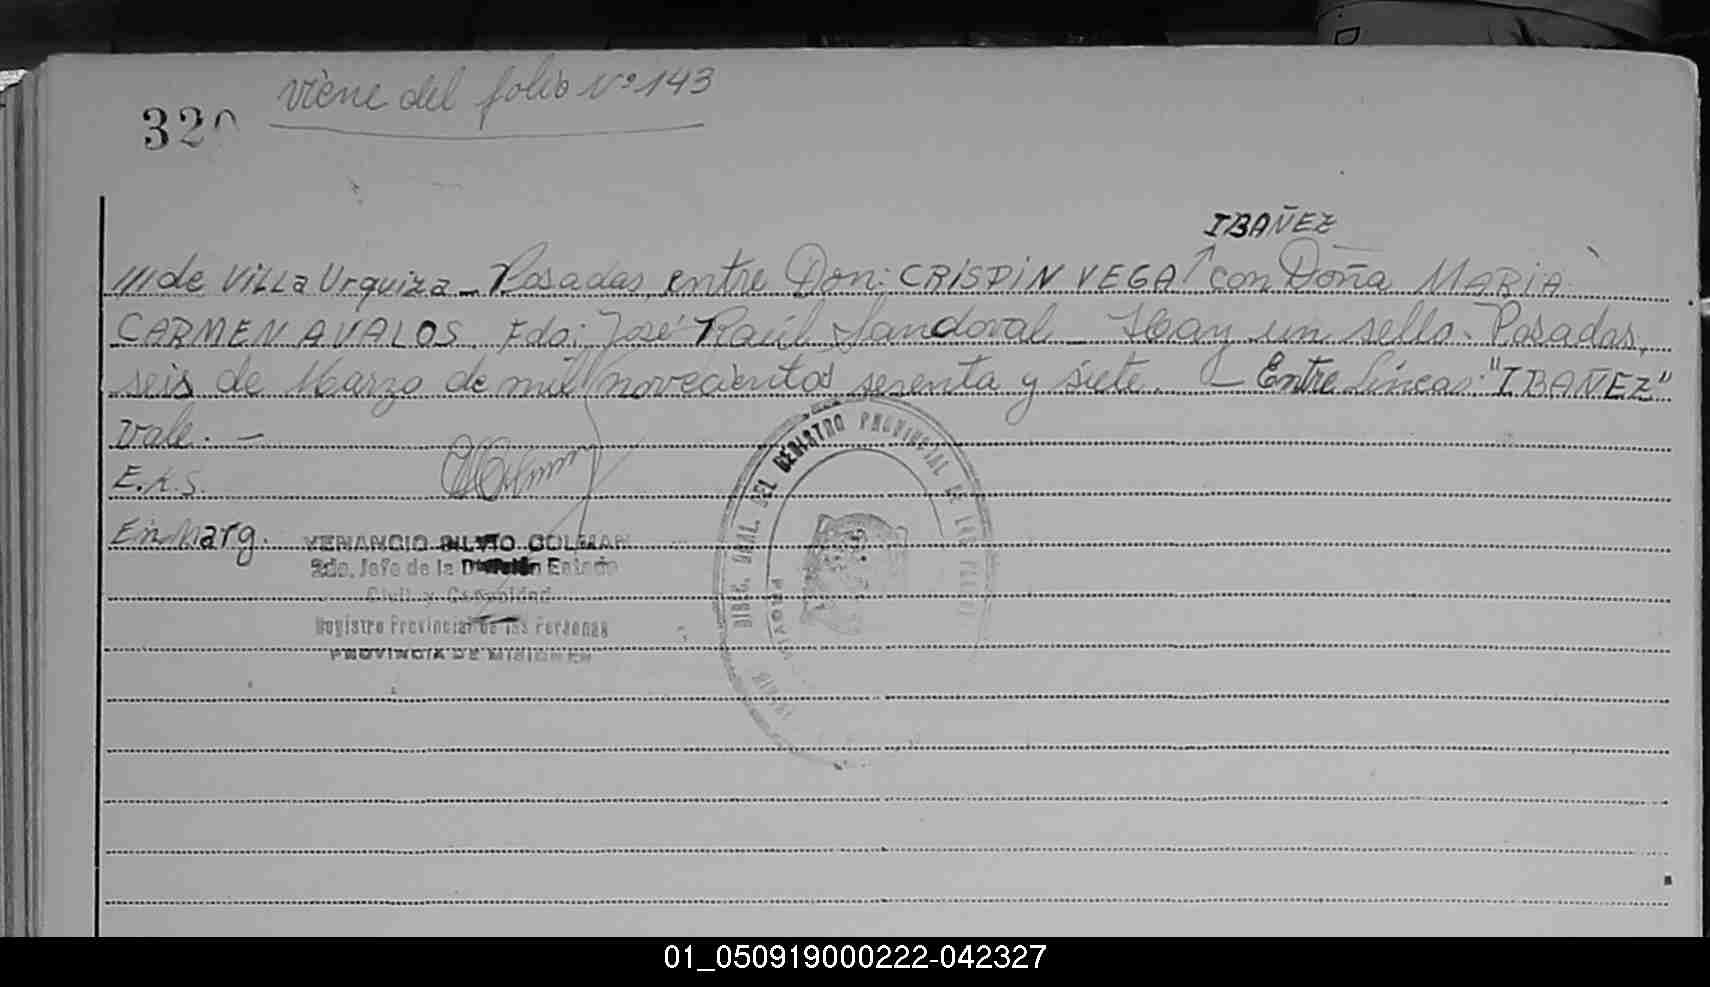 viene del folio Nº 143
320
IBAÑEZ
///de Villa Urquiza - Posadas, entre Don: CRISPIN VEGA con Doña MARIA
CARMEN AVALOS. Fdo: José Raúl Sandoval - Hay un sello. Posadas,
seis de Marzo de mil novecientos setenta y siete. - Entre Líneas: "IBAÑEZ"
Vale. -
E.K.S.
En Marg.
VENANCIO SILVIO COLMAN
2do. Jefe de la División Estado
Civil y Capacidad
Registro Provincial de las Personas
PROVINCIA DE MISIONES
DIREC. GRAL. DEL REGISTRO PROVINCIAL DE LAS
PROVINCIA
01_050919000222-042327